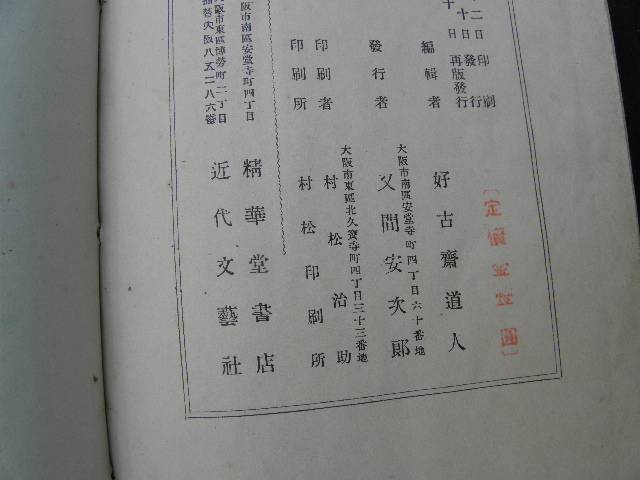 二日印刷
十日發行
十日再版發行
定價金 圓
編輯者 好古齋道人
大阪市南區安堂寺町四丁目六十番地
發行者 又間安次郎
大阪市東區北久寶寺町四丁目三十三番地
印刷者 村松治助
印刷所 村松印刷所
大阪市南區安堂寺町四丁目
精華堂書店
大阪市東區博勞町二丁目
振替大阪八五二八六番
近代文藝社